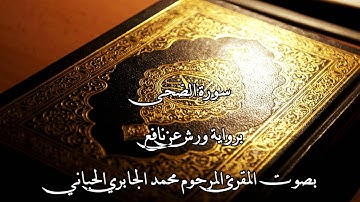 سورة الضحى
برواية ورش عن نافع
بصوت المقرئ المرحوم محمد الجابري الحياني